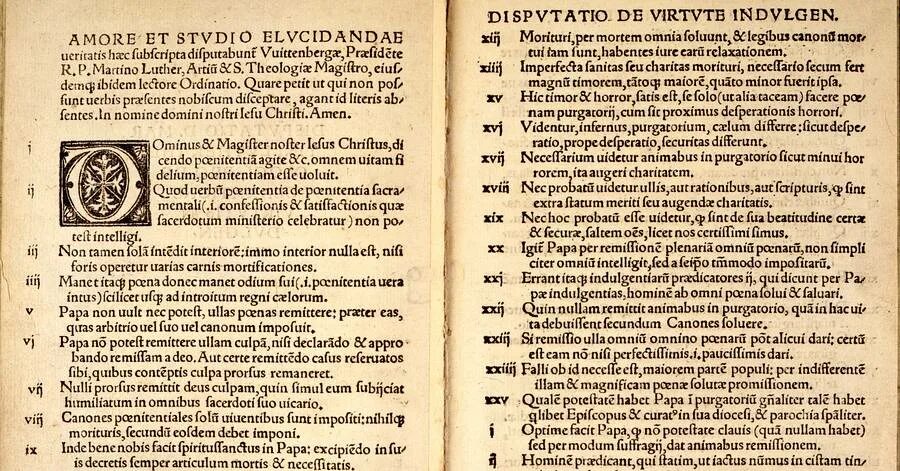 AMORE ET STVDIO ELVCIDANDAE
ueritatis hæc subscripta disputabunť Vuittenbergæ, Præsidẽte
R. P. Martino Luther, Artiũ & S. Theologiæ Magistro, eius/
demq́ȝ ibidem lectore Ordinario. Quare petit ut qui non pos/
sunt uerbis præsentes nobiscum disceptare, agant id literis ab/
sentes. In nomine domini nostri Iesu Christi. Amen.
j Ominus & Magister noster Iesus Christus, di
cendo pœnitentiã agite &c. omnem uitam fi
delium, pœnitentiam esse uoluit.
ij Quod uerbũ pœnitentia de pœnitentia sacra/
mentali (.i. confessionis & satisfactionis quæ
sacerdotum ministerio celebratur) non po/
test intelligi.
iij Non tamen solã intẽdit interiorẽ: immo interior nulla est, nisi
foris operetur uarias carnis mortificationes.
iiij Manet itaq́ȝ pœna donec manet odium sui (.i. pœnitentia uera
intus) scilicet usq́ȝ ad introitum regni cælorum.
v Papa non uult nec potest, ullas pœnas remittere: præter eas,
quas arbitrio uel suo uel canonum imposuit.
vj Papa nõ potest remittere ullam culpã, nisi declarãdo & appro
bando remissam a deo. Aut certe remittẽdo casus reseruatos
sibi, quibus contẽptis culpa prorsus remaneret.
vij Nulli prorsus remittit deus culpam, quin simul eum subijciat
humiliatum in omnibus sacerdoti suo uicario.
viij Canones pœnitentiales solũ uiuentibus sunt impositi: nihilq́ȝ
morituris, secundũ eosdem debet imponi.
ix Inde bene nobis facit spiritussanctus in Papa: excipiẽdo in su/
is decretis semper articulum mortis & necessitatis.
DISPVTATIO DE VIRTVTE INDVLGEN.
xiij Morituri, per mortem omnia soluunt, & legibus canonũ mor/
tui iam sunt, habentes iure earũ relaxationem.
xiiij Imperfecta sanitas seu charitas morituri, necessario secum fert
magnũ timorem, tãtoq́ȝ maiorẽ, quãto minor fuerit ipsa.
xv Hic timor & horror, satis est, se solo (ut alia taceam) facere pœ/
nam purgatorij, cum sit proximus desperationis horrori.
xvj Videntur, infernus, purgatorium, cælum differre: sicut despe/
ratio, prope desperatio, securitas differunt.
xvij Necessarium uidetur animabus in purgatorio sicut minui hor
rorem, ita augeri charitatem.
xviij Nec probatũ uidetur ullis, aut rationibus, aut scripturis, ꝙ sint
extra statum meriti seu augendæ charitatis.
xix Nec hoc probatũ esse uidetur, ꝙ sint de sua beatitudine certæ
& securæ, saltem oẽs, licet nos certissimi simus.
xx Igiť Papa per remissionẽ plenariã omniũ pœnarũ, non simpli
citer omniũ intelligit, sed a seipo tm̃modo impositarũ.
xxj Errant itaq́ȝ indulgentiarũ prædicatores ij, qui dicunt per Pa/
pæ indulgentias, hominẽ ab omni pœna solui & saluari.
xxij Quin nullam remittit animabus in purgatorio, quã in hac ui/
ta debuissent secundum Canones soluere.
xxiij Si remissio ulla omniũ omnino pœnarũ põt alicui dari: certũ
est eam nõ nisi perfectissimis .i. paucissimis dari.
xxiiij Falli ob id necesse est, maiorem partẽ populi: per indifferentẽ
illam & magnificam pœnæ solutæ promissionem.
xxv Qualẽ potestatẽ habet Papa ĩ purgatoriũ gñaliter talẽ habet
q̃libet Episcopus & curatꝰ in sua diocesi, & parochia spãliter.
j Optime facit Papa, ꝙ nõ potestate clauis (quã nullam habet)
sed per modum suffragij, dat animabus remissionem.
ij Hominẽ prædicant, qui statim, ut iactus nũmus in cistam tin/